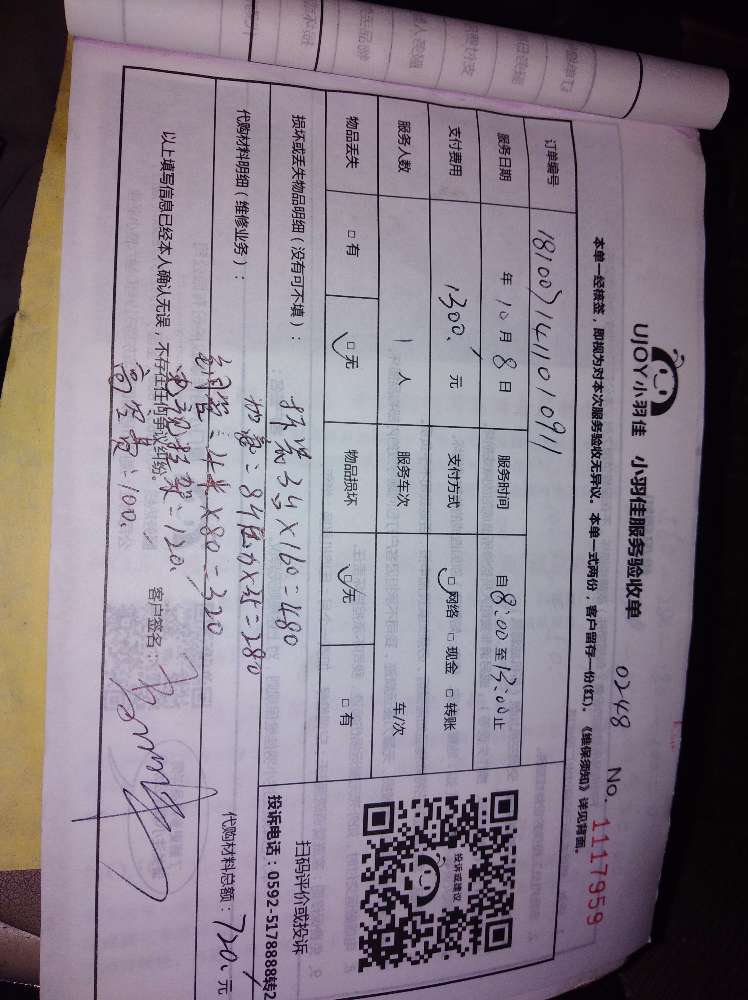 UJOY小羽佳 小羽佳服务验收单 0248 No. 1117959
本单一经核签，即视为对本次服务验收无异议。本单一式两份，客户留存一份(红)。《维保须知》详见背面。
订单编号 1810071411010911
服务日期 年 10 月 8 日 服务时间 自 8:00 至 13:00 止
支付费用 1300. 元 支付方式 ☑网络 □现金 □转账
服务人数 1 人 服务车次 车/次
物品丢失 □有 ☑无 物品损坏 ☑无 □有
投诉或建议
扫码评价或投诉
投诉电话：0592-5178888转2
损坏或丢失物品明细（没有可不填）：
拆装3台×160=480
加氟：8个压力×35=280
代购材料明细（维修业务）：
铜管：4米×80=320
电视挂架=120.
高空费：100.
代购材料总额：720.元
以上填写信息已经本人确认无误，不存在任何争议纠纷。 客户签名：